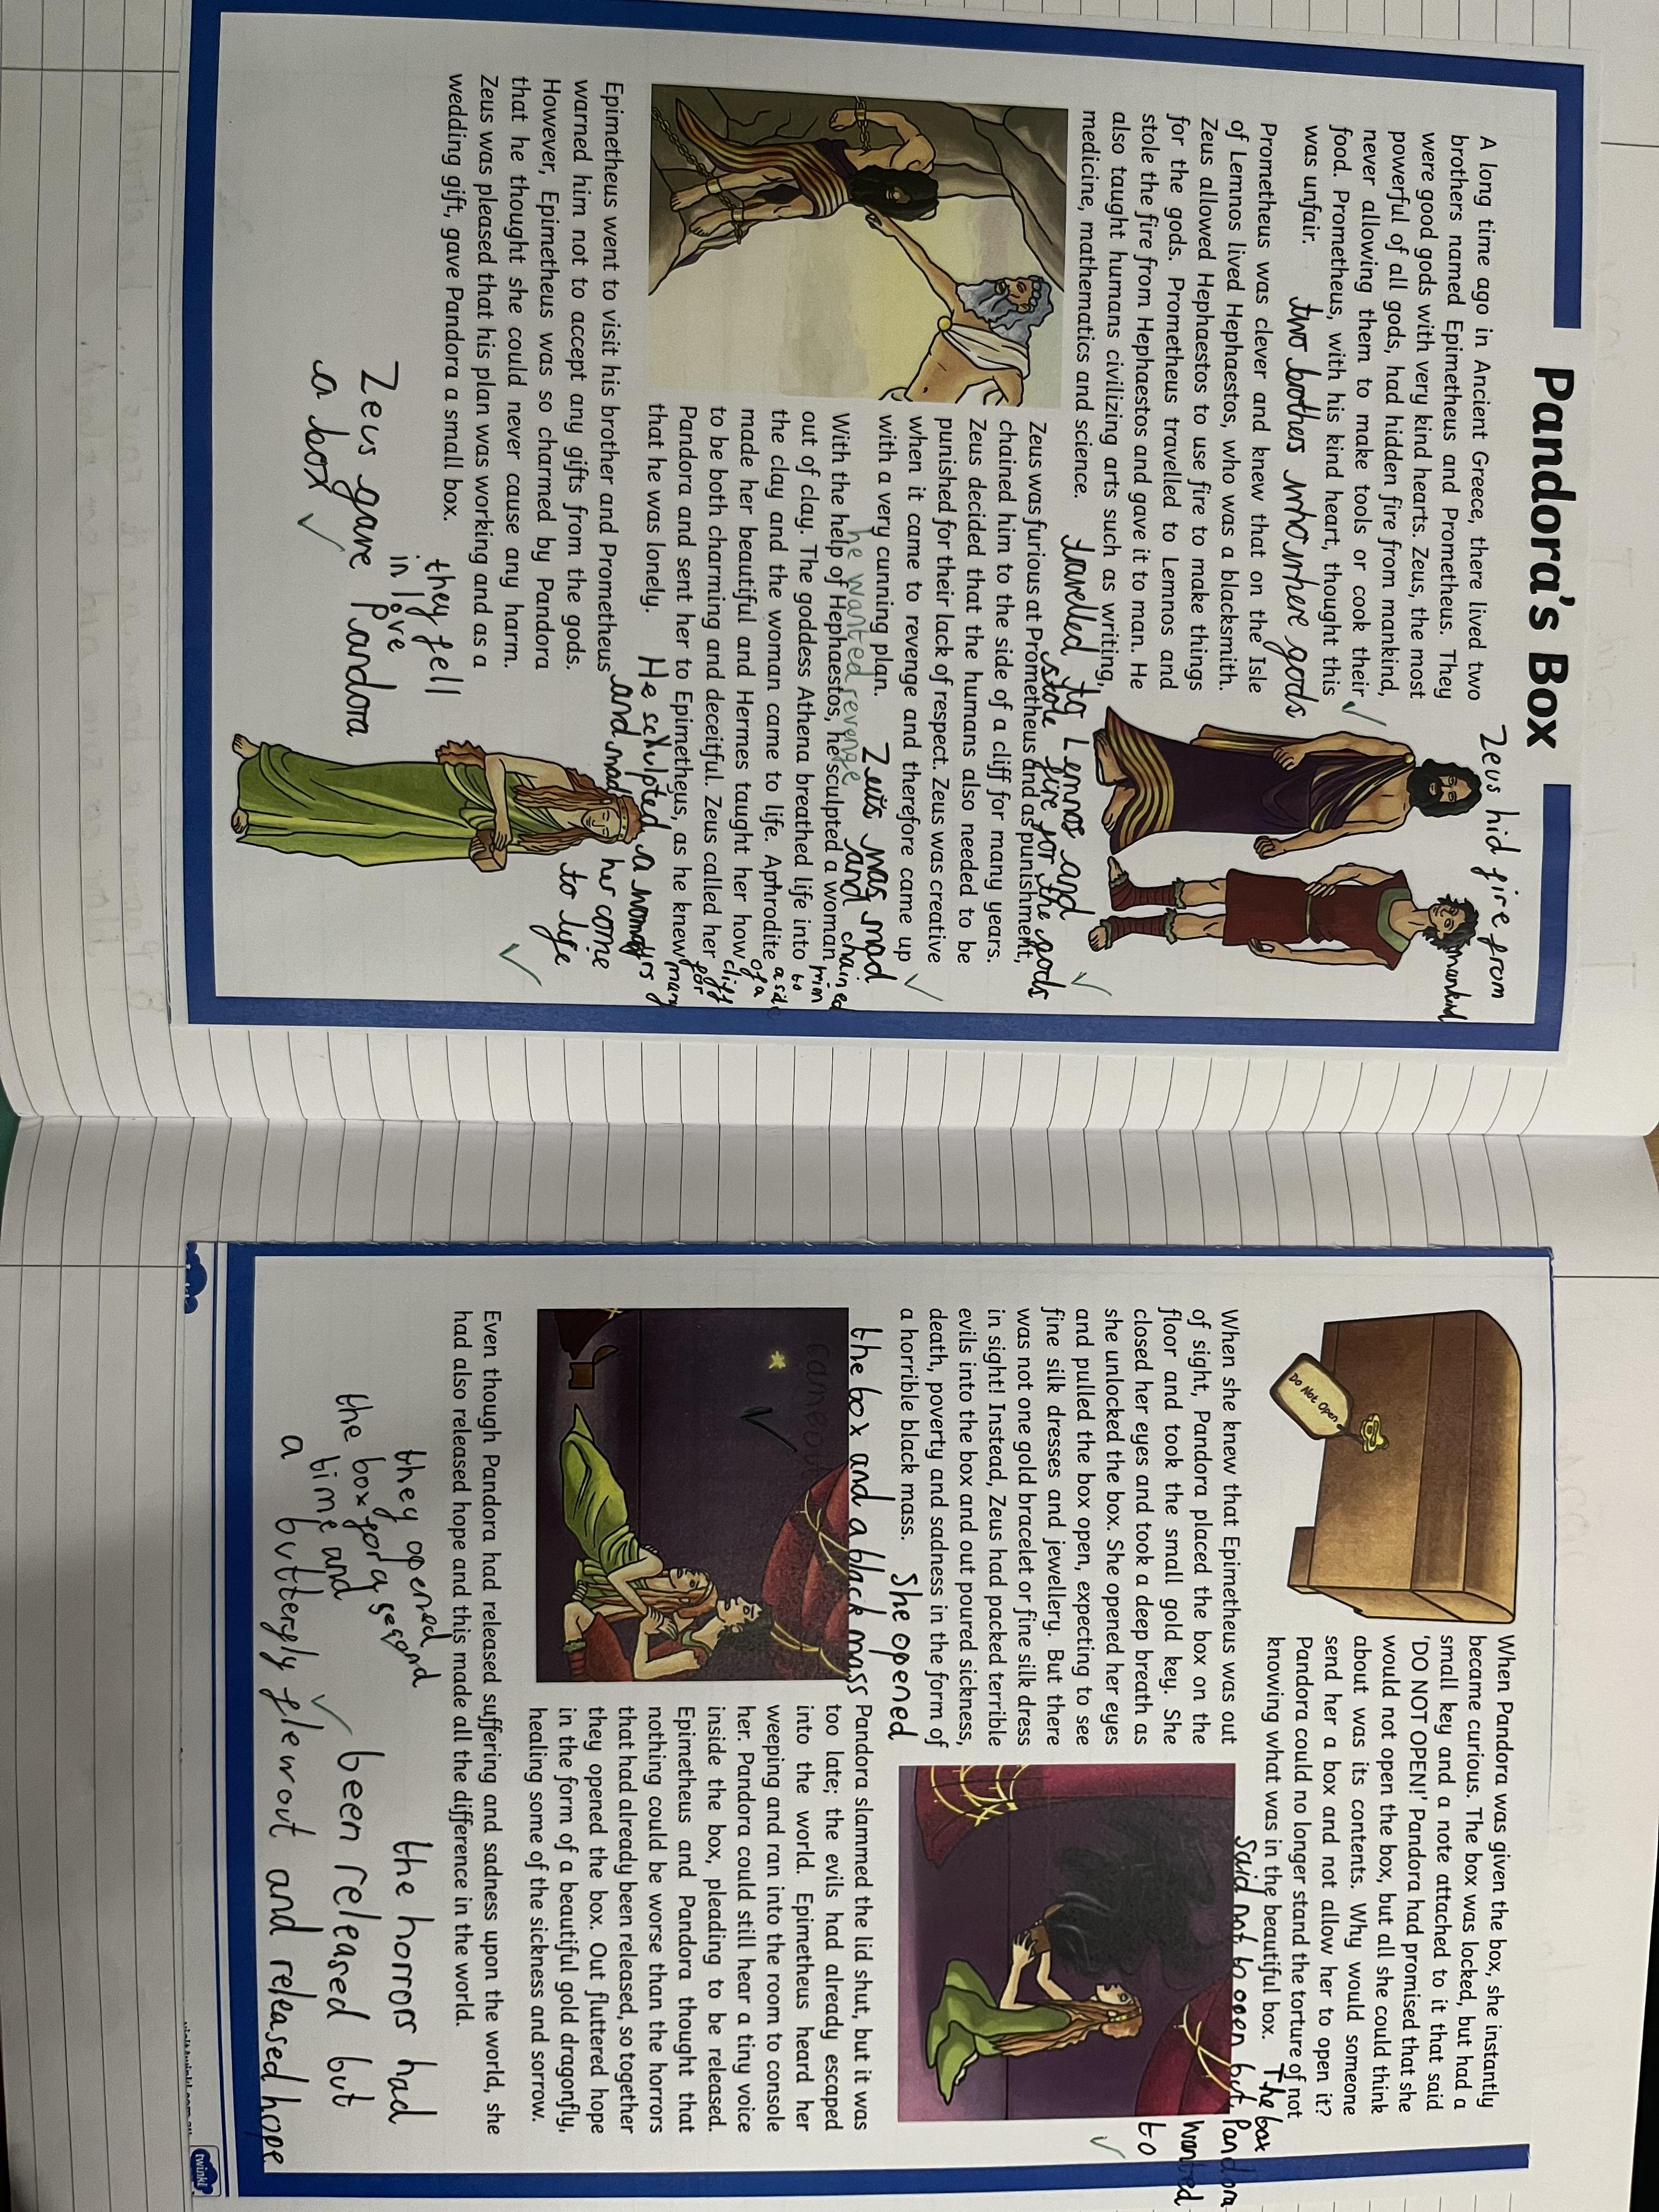 Pandora's Box
Zeus hid fire from
mankind
A long time ago in Ancient Greece, there lived two
brothers named Epimetheus and Prometheus. They
were good gods with very kind hearts. Zeus, the most
powerful of all gods, had hidden fire from mankind,
never allowing them to make tools or cook their
food. Prometheus, with his kind heart, thought this
was unfair.
two brothers who where gods
Prometheus was clever and knew that on the Isle
of Lemnos lived Hephaestos, who was a blacksmith.
Zeus allowed Hephaestos to use fire to make things
for the gods. Prometheus travelled to Lemnos and
stole the fire from Hephaestos and gave it to man. He
also taught humans civilizing arts such as writing,
medicine, mathematics and science.
tavelled to Lemnos and
stole fire for the gods
Zeus was furious at Prometheus and as punishment,
chained him to the side of a cliff for many years.
Zeus decided that the humans also needed to be
punished for their lack of respect. Zeus was creative
when it came to revenge and therefore came up
with a very cunning plan.
Zeus was mad
and chained
him
to
a side
of a
cliff
for
many
yrs
he wanted revenge
With the help of Hephaestos, he sculpted a woman
out of clay. The goddess Athena breathed life into
the clay and the woman came to life. Aphrodite
made her beautiful and Hermes taught her how
to be both charming and deceitful. Zeus called her
Pandora and sent her to Epimetheus, as he knew
that he was lonely.
He sculpted a woman
and made her come
to life
Epimetheus went to visit his brother and Prometheus
warned him not to accept any gifts from the gods.
However, Epimetheus was so charmed by Pandora
that he thought she could never cause any harm.
Zeus was pleased that his plan was working and as a
wedding gift, gave Pandora a small box.
they fell
in love
Zeus gave Pandora
a box
Do Not Open
When Pandora was given the box, she instantly
became curious. The box was locked, but had a
small key and a note attached to it that said
'DO NOT OPEN!' Pandora had promised that she
would not open the box, but all she could think
about was its contents. Why would someone
send her a box and not allow her to open it?
Pandora could no longer stand the torture of not
knowing what was in the beautiful box.
The box
said not to open but Pandora
wanted
to
When she knew that Epimetheus was out
of sight, Pandora placed the box on the
floor and took the small gold key. She
closed her eyes and took a deep breath as
she unlocked the box. She opened her eyes
and pulled the box open, expecting to see
fine silk dresses and jewellery. But there
was not one gold bracelet or fine silk dress
in sight! Instead, Zeus had packed terrible
evils into the box and out poured sickness,
death, poverty and sadness in the form of
a horrible black mass.
She opened
the box and a black mass
came out
Pandora slammed the lid shut, but it was
too late; the evils had already escaped
into the world. Epimetheus heard her
weeping and ran into the room to console
her. Pandora could still hear a tiny voice
inside the box, pleading to be released.
Epimetheus and Pandora thought that
nothing could be worse than the horrors
that had already been released, so together
they opened the box. Out fluttered hope
in the form of a beautiful gold dragonfly,
healing some of the sickness and sorrow.
Even though Pandora had released suffering and sadness upon the world, she
had also released hope and this made all the difference in the world.
the horrors had
been released but
they opened
the box for a second
time and
a butterfly flew out and released hope
twinkl